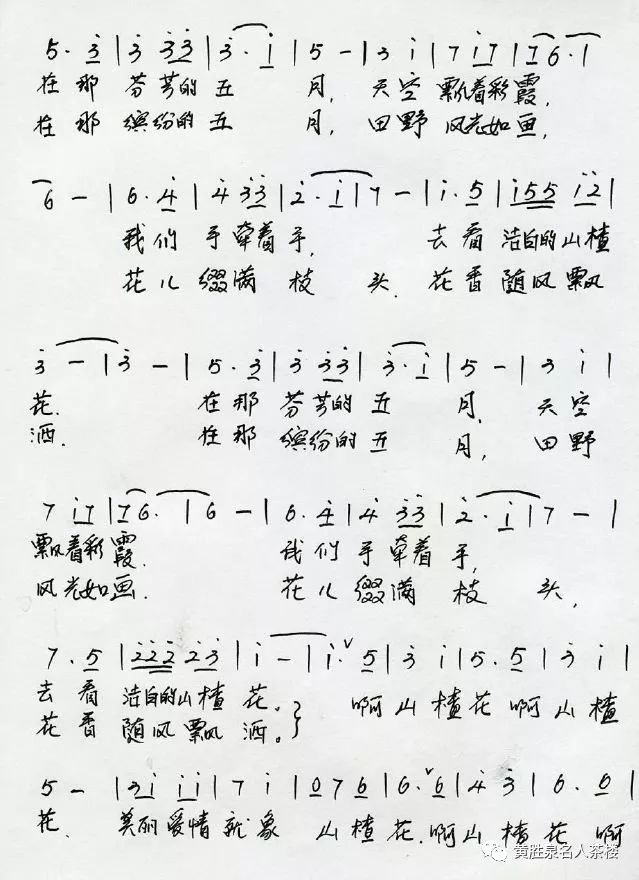 5. 3 | 3 33 | 3. i | 5 - | 3 i | 7 i7 | 76. |
在那 芬芳的 五 月, 天空 飘着彩霞,
在那 缤纷的 五 月, 田野 风光如画,
6 - | 6. 4 | 4 33 | 2. i | 7 - | i. 5 | i55 i2 |
我们 手牵着手, 去看 洁白的山楂
花儿 缀满 枝 头. 花香 随风飘
3 - | 3 - | 5. 3 | 3 33 | 3. i | 5 - | 3 i |
花. 在那 芬芳的 五 月. 天空
洒. 在那 缤纷的 五 月, 田野
7 i7 | 76. | 6 - | 6. 4 | 4 33 | 2. i | 7 - |
飘着彩霞. 我们 手牵着 手,
风光如画. 花儿 缀满 枝 头,
7. 5 | 222 23 | i - | i. ∨ 5 | 3 i | 5. 5 | 3 i |
去看 洁白的山楂 花。 啊 山楂花 啊 山楂
花香 随风飘 洒。}
5 - | 3i ii | 7 i | 076 | 6. ∨ 6 | 4 3 | 6. 6 |
花. 美丽爱情就象 山楂花. 啊山楂花 啊
黄胜泉名人茶楼